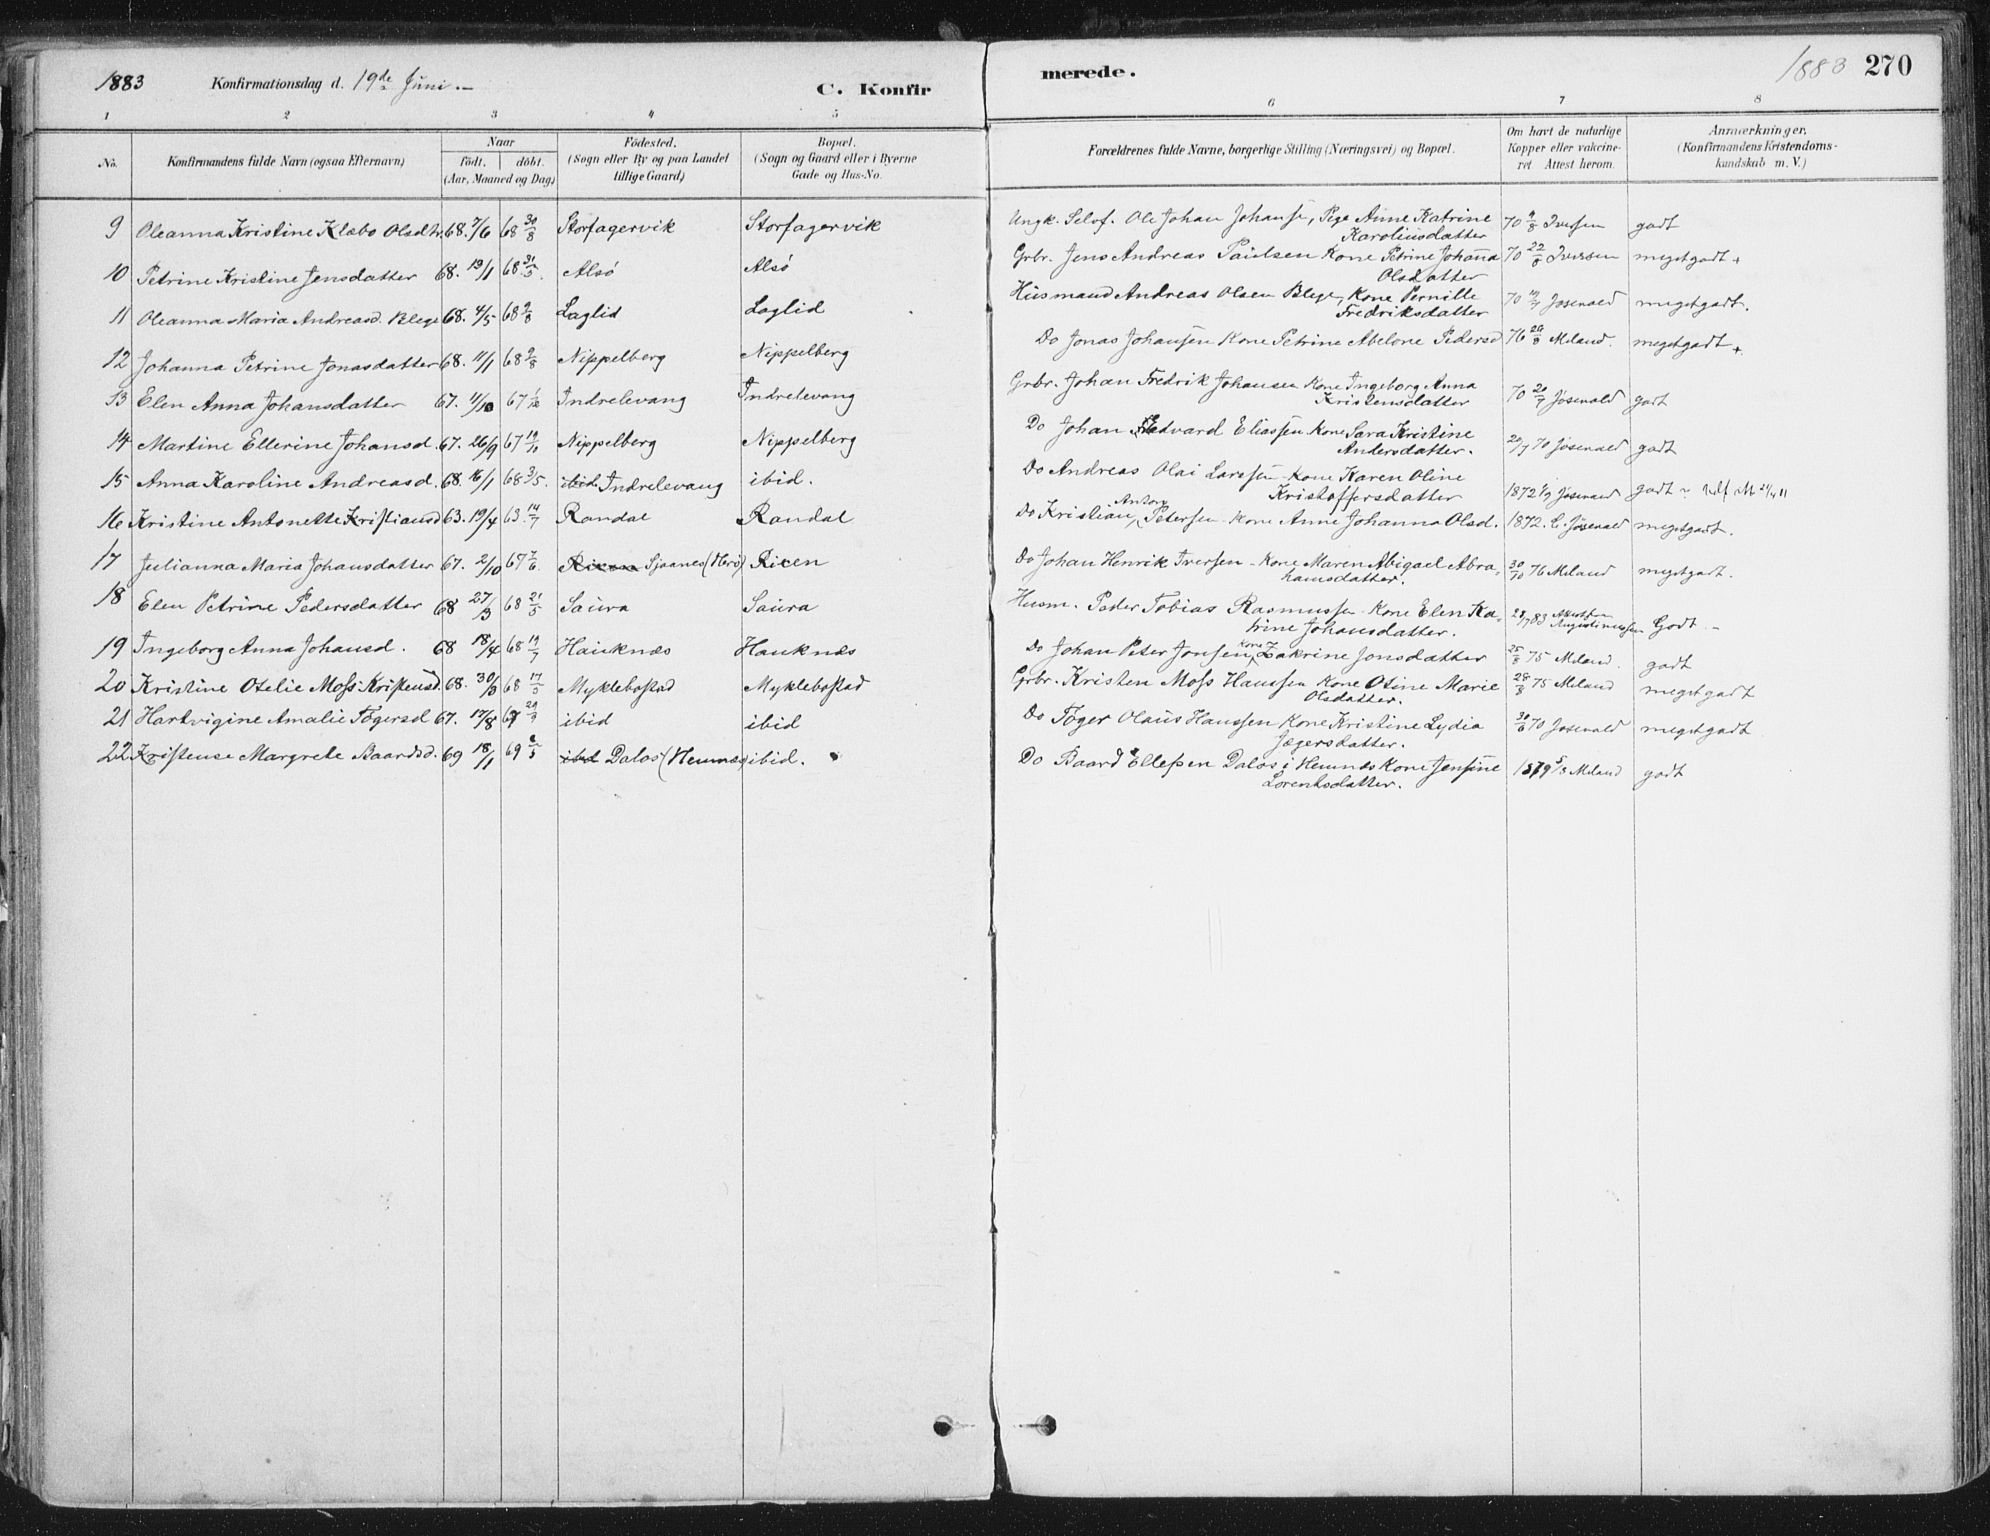 1883 Konfirmationsdag d. 19de Juni.— C. Konfirmerede. 1883 270
1 2 3 4 5 6 7 8
No. Konfirmandens fulde Navn (ogsaa Efternavn) Naar født. døbt. (Aar, Maaned og Dag) Fødested. (Sogn eller By og paa Landet tillige Gaard) Bopæl. (Sogn og Gaard eller i Byerne Gade og Hus-No. Forældrenes fulde Navne, borgerlige Stilling (Næringsvei) og Bopæl. Om havt de naturlige Kopper eller vaccineret Attest herom. Anmærkninger. (Konfirmandens Kristendomskundskab m. V.)
9 Oleanna Kristine Klæbo Olsdtr. 68. 7/6 68 30/8 Storfagervik Storfagervik Ungk. Selvf. Ole Johan Johans, Pige Anne Katrine Karoliusdatter 70 9/8 Iversen godt
10 Petrine Kristine Jensdatter 68. 19/1 68 31/5. Alsö Alsö Grbr. Jens Andreas Paulsen Kone Petrine Johana Olsdatter 70 22/8 Iversen megetgodt +
11 Oleanna Maria Andreasd. Blege 68. 4/5 68 2/8 Laglid Laglid Husmand Andreas Olsen Blege, Kone Pernille Fredriksdatter 70 Jøsevald megetgodt.
12 Johanna Petrine Jonasdatter 68. 11/1 68 2/8 Nippelberg Nippelberg Do Jonas Johansen Kone Petrine Abelone Pedersd 76 Meland. megetgodt +
13 Elen Anna Johansdatter 67. 11/10 67 1/12 Indrelevang Indrelevang Grbr. Johan Fredrik Johansen Kone Ingeborg Anna Kristensdatter 70 20/7 Jøsevald godt
14 Martine Ellerine Johansd. 67. 26/9 67 19/10 Nippelberg Nippelberg Do Johan Edvard Eliassen Kone Sara Kristine Andersdatter. 20/7 70 Jøsevald godt
15 Anna Karoline Andreasd. 68. 16/1 68 3/5. ibid. Indrelevang ibid. Do Andreas Olai Larssen Kone Karen Oline Kristoffersdatter 1872 Jøsevald godt
16 Kristine Antonette Kristiansd 63. 19/4 63. 14/7 Randal Randal Do Kristian Anton Petersen Kone Anne Johanna Olsd. 1872. Jøsevald megetgodt.
17 Julianna Maria Johansdatter 67. 2/10 67 7/6 Ricen Sjaanes (Herö) Ricen Do Johan Henrik Iversen – Kone Maren Abigael Abrahamsdatter. 30/10 76 Meland megetgodt.
18 Elen Petrine Pedersdatter 68 27/3 68 21/5 Saura Saura Husm. Peder Tobias Rasmussen Kone Elen Katrine Johansdatter. 28/7 83 Augustinussen Godt. –
19 Ingeborg Anna Johansd. 68 18/4 68 19/7 Hauknæs Hauknæs Do Johan Peter Jonsen Kone Zakrine Jonsdatter 25/8 75 Meland. godt
20 Kristine Otelie Moss Kristensd. 68. 30/3 68 17/5 Myklebostad Myklebostad Grbr. Kristen Moss Hanssen Kone Otine Marie Olsdatter. 28/8 75 Meland megetgodt
21 Hartvigine Amalie Tögersd 67. 17/8 67 29/9 ibid ibid Do Töger Olaus Hanssen Kone Kristine Lydia Jægersdatter. 30/6 70 Jøsevald megetgodt
22 Kristense Margrete Baardsd. 69 18/1 69 6/5 ibid Dalos (Hemnæs) ibid. Do Baard Ellefsen Dalos i Hemnes Kone Jensine Lorentsdatter. 1879 5/3 Meland godt